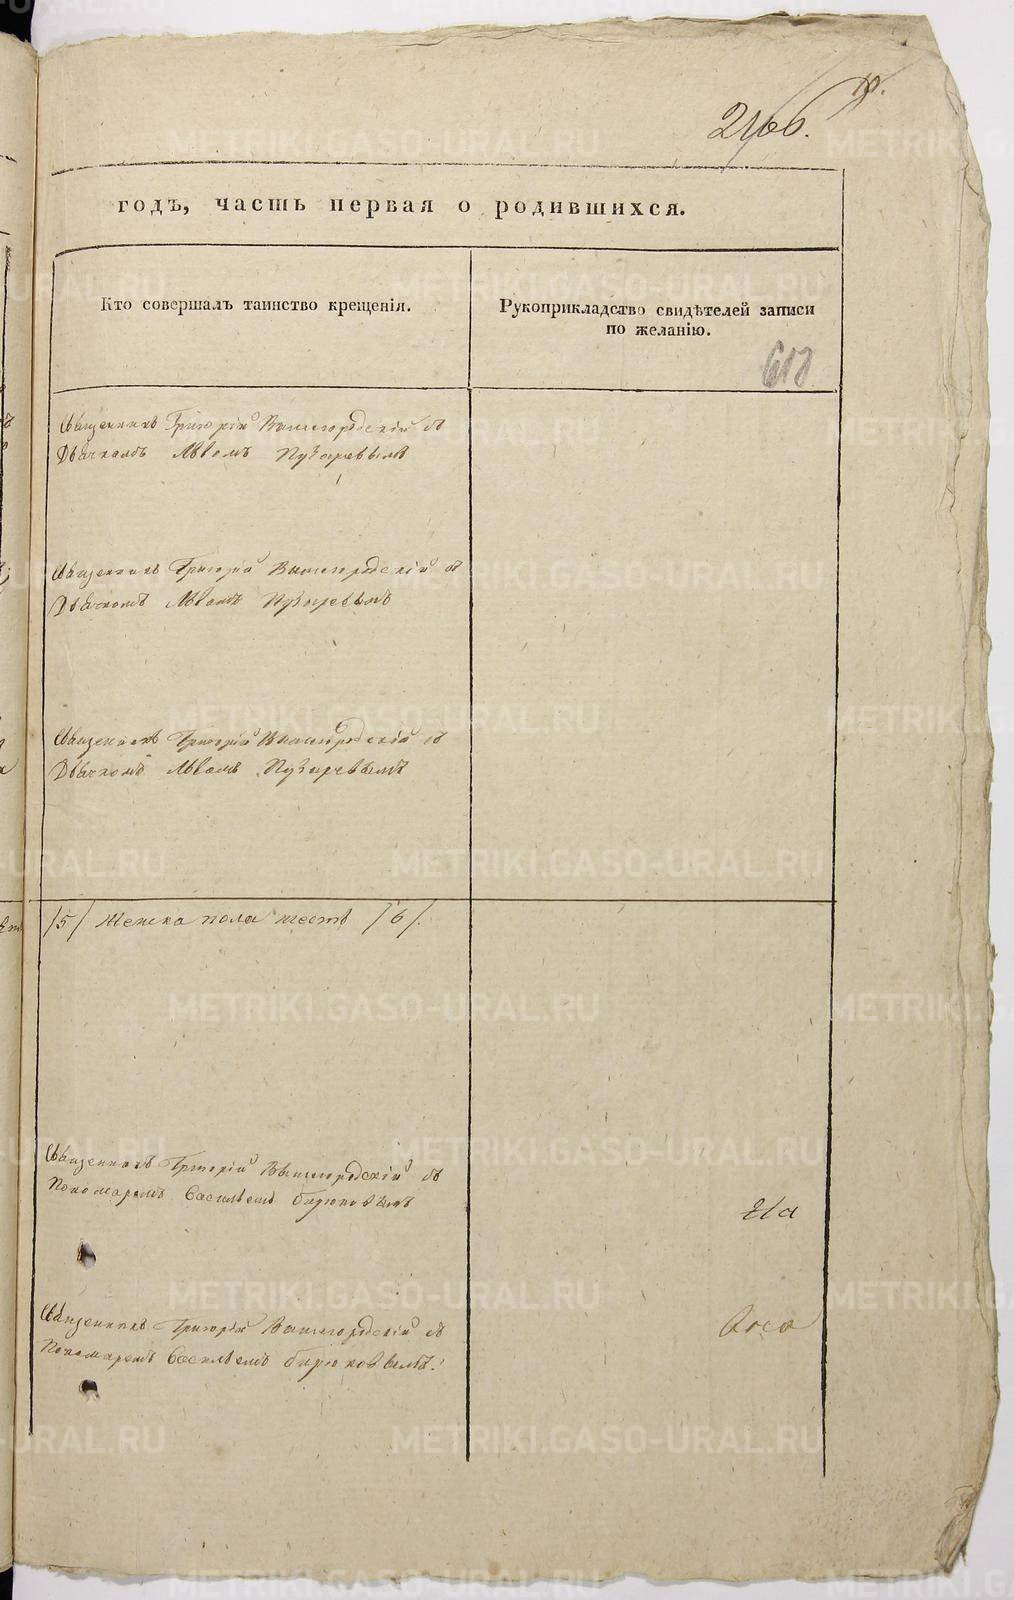 годъ, часть первая о родившихся.
Кто совершалъ таинство крещенія.
Рукоприкладство свидѣтелей записи
по желанію.
618
Священникъ Григорій Вышегородскій съ
Дьячкомъ Львомъ Пузыревымъ
Священникъ Григорій Вышегородскій съ
Дьячкомъ Львомъ Пузыревымъ
Священникъ Григорій Вышегородскій съ
Дьячкомъ Львомъ Пузыревымъ
/5/ Женска пола шесть /6/.
Священникъ Григорій Вышегородскій съ
Пономаремъ Васильемъ Бирюковымъ
Священникъ Григорій Вышегородскій съ
Пономаремъ Васильемъ Бирюковымъ.
METRIKI.GASO-URAL.RU